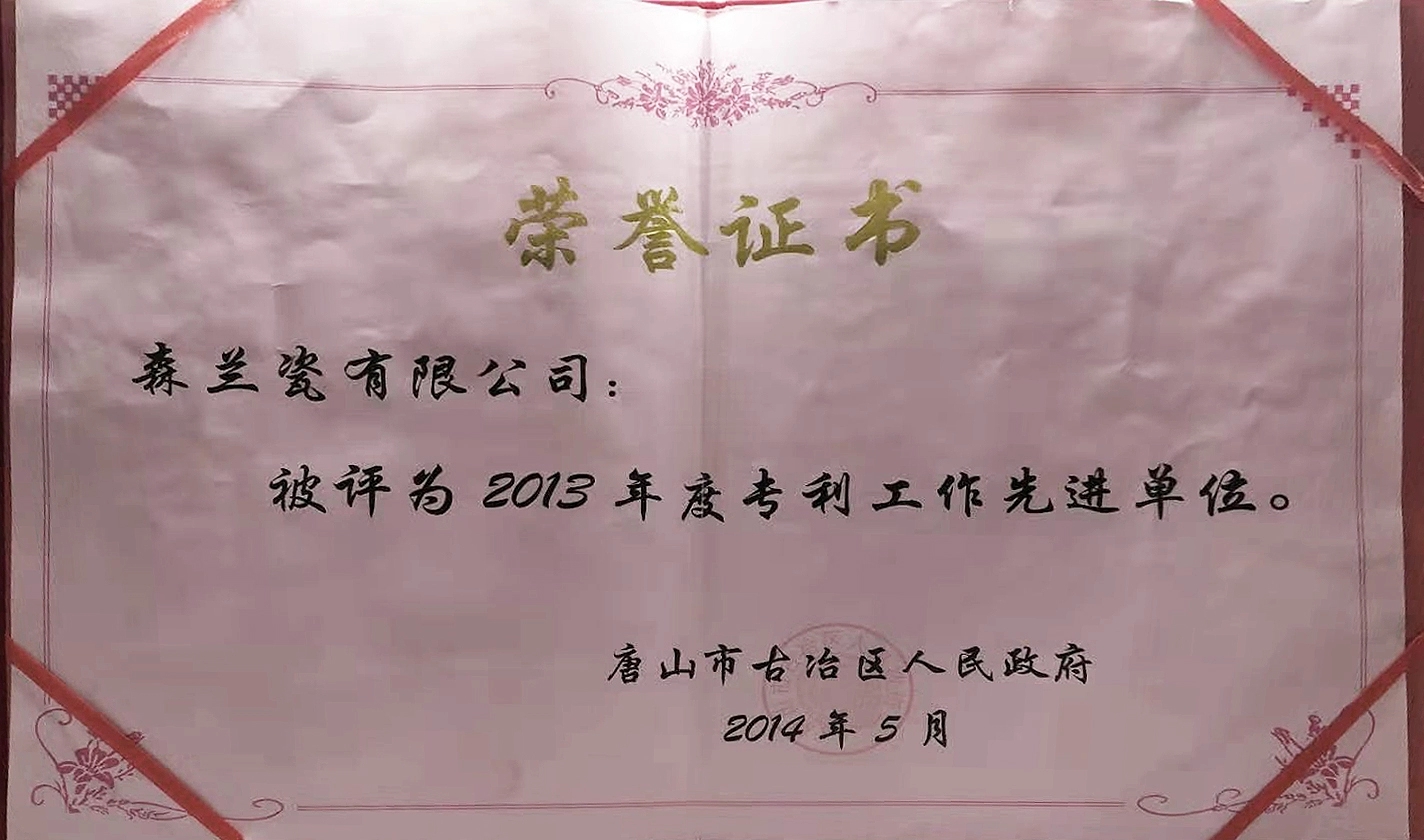 荣誉证书
森兰瓷有限公司：
被评为2013年度专利工作先进单位。
唐山市古冶区人民政府
2014年5月